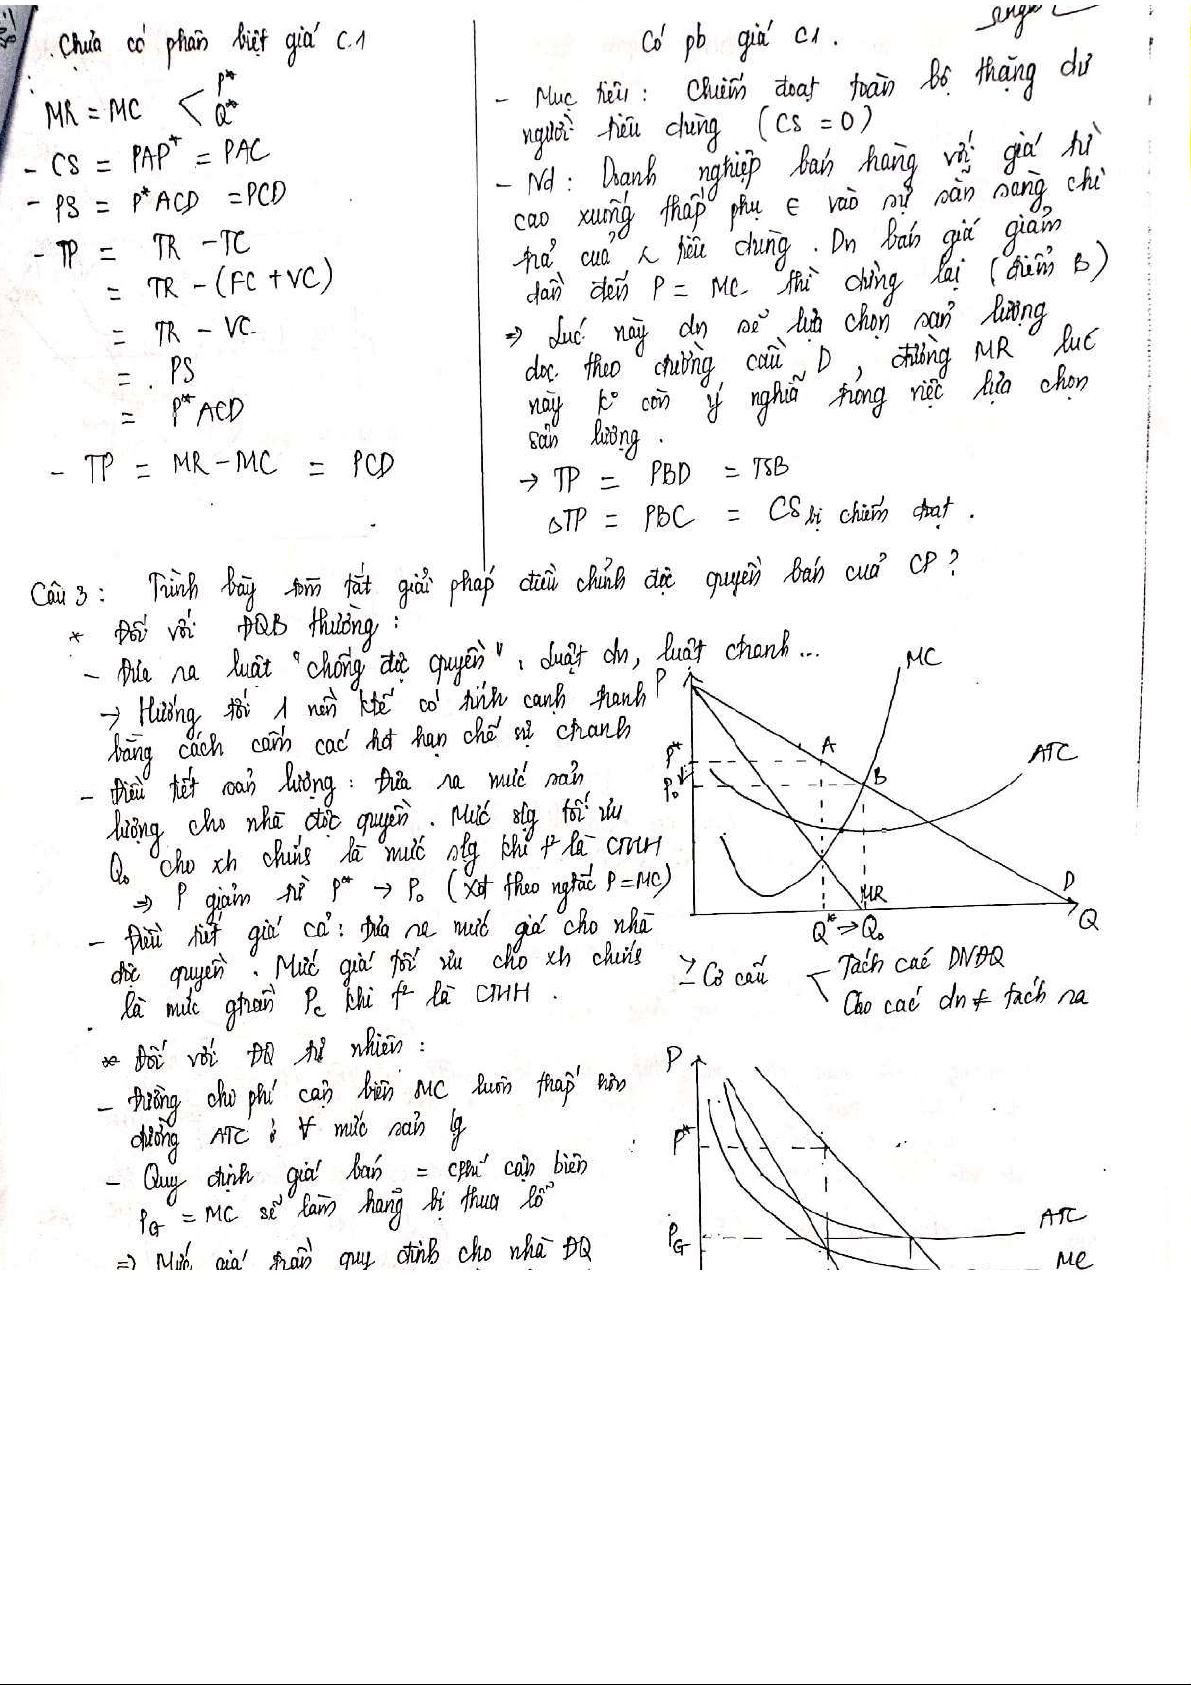 Chưa có phân biệt giá C.1
MR = MC < P*
Q*
- CS = PAP* = PAC
- PS = P*ACD = PCD
- TP = TR - TC
= TR - (FC + VC)
= TR - VC
= PS
= P*ACD
- TP = MR - MC = PCD
Có pb giá C1.
- Mục tiêu: Chiếm đoạt toàn bộ thặng dư
người tiêu dùng (CS = 0)
- Nd: Doanh nghiệp bán hàng với giá từ
cao xuống thấp phụ ∈ vào sự sẵn sàng chi
trả của tiêu dùng. Dn bán giá giảm
dần đến P = MC thì dừng lại (điểm B)
=> Lúc này dn sẽ lựa chọn sản lượng
dọc theo đường cầu D, đường MR lúc
này k° còn ý nghĩa trong việc lựa chọn
sản lượng.
→ TP = PBD = TSB
ΔTP = PBC = CS bị chiếm đoạt.
Câu 3: Trình bày tóm tắt giải pháp điều chỉnh độc quyền bán của CP?
* Đối với ĐQB thường:
- Đưa ra luật "chống độc quyền", luật dn, luật ctranh...
→ Hướng tới 1 nền ktế có tính cạnh tranh
bằng cách cấm các hđ hạn chế sự ctranh
- Điều tiết sản lượng: Đưa ra mức sản
lượng cho nhà độc quyền. Mức slg tối ưu
Q₀ cho xh chính là mức slg khi t² là CTHH
=> P giảm từ P* → P₀ (Xđ theo ngtắc P = MC)
- Điều tiết giá cả: Đưa ra mức giá cho nhà
độc quyền. Mức giá tối ưu cho xh chính
là mức gtrần Pc khi t² là CTHH.
P
MC
P*
A
ATC
P₀
B
MR
D
Q* => Q₀
Q
- Cơ cấu < Tách các DNĐQ
Cho các dn ≠ tách ra
* Đối với ĐQ tự nhiên:
- Đường chi phí cận biên MC luôn thấp hơn
đường ATC ở ∀ mức sản lg
- Quy định giá bán = cphí cận biên
PG = MC sẽ làm hãng bị thua lỗ
=> Mức giá trần quy định cho nhà ĐQ
P
P*
PG
ATC
MC